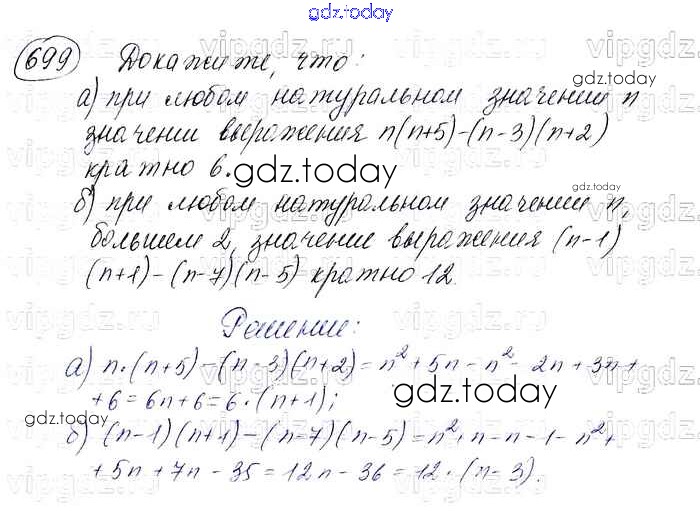 gdz.today
699 Докажите, что:
а) при любом натуральном значении n
значении выражения n(n+5)-(n-3)(n+2)
кратно 6.
б) при любом натуральном значении n,
большем 2, значение выражения (n-1)
(n+1)-(n-7)(n-5) кратно 12.
Решение:
а) n·(n+5)-(n-3)(n+2)=n²+5n-n²-2n+3n+
+6=6n+6=6·(n+1);
б) (n-1)(n+1)-(n-7)(n-5)=n²+n-n-1-n²+
+5n+7n-35=12n-36=12·(n-3).
gdz.today
gdz.today
gdz.today
gdz.today
gdz.today
gdz.today
gdz.today